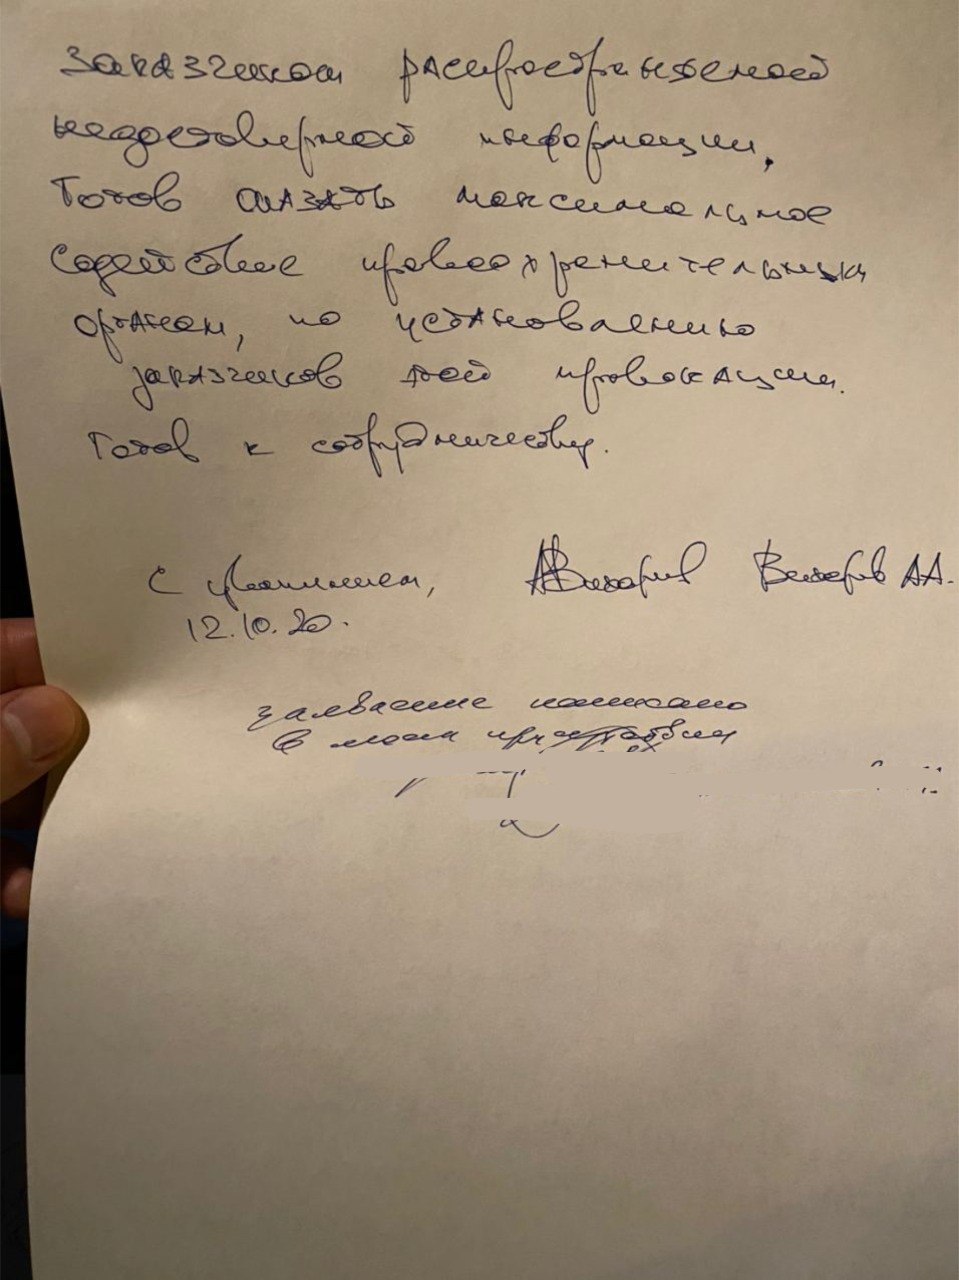 заказчиком распространяемой
недостоверной информации.
Готов оказать максимальное
содействие правоохранительным
органам, по установлению
заказчиков этой провокации.
Готов к сотрудничеству.
С уважением, Вихарев Вихарев А.А.
12.10.20.
заявление написано
в моем присутствии